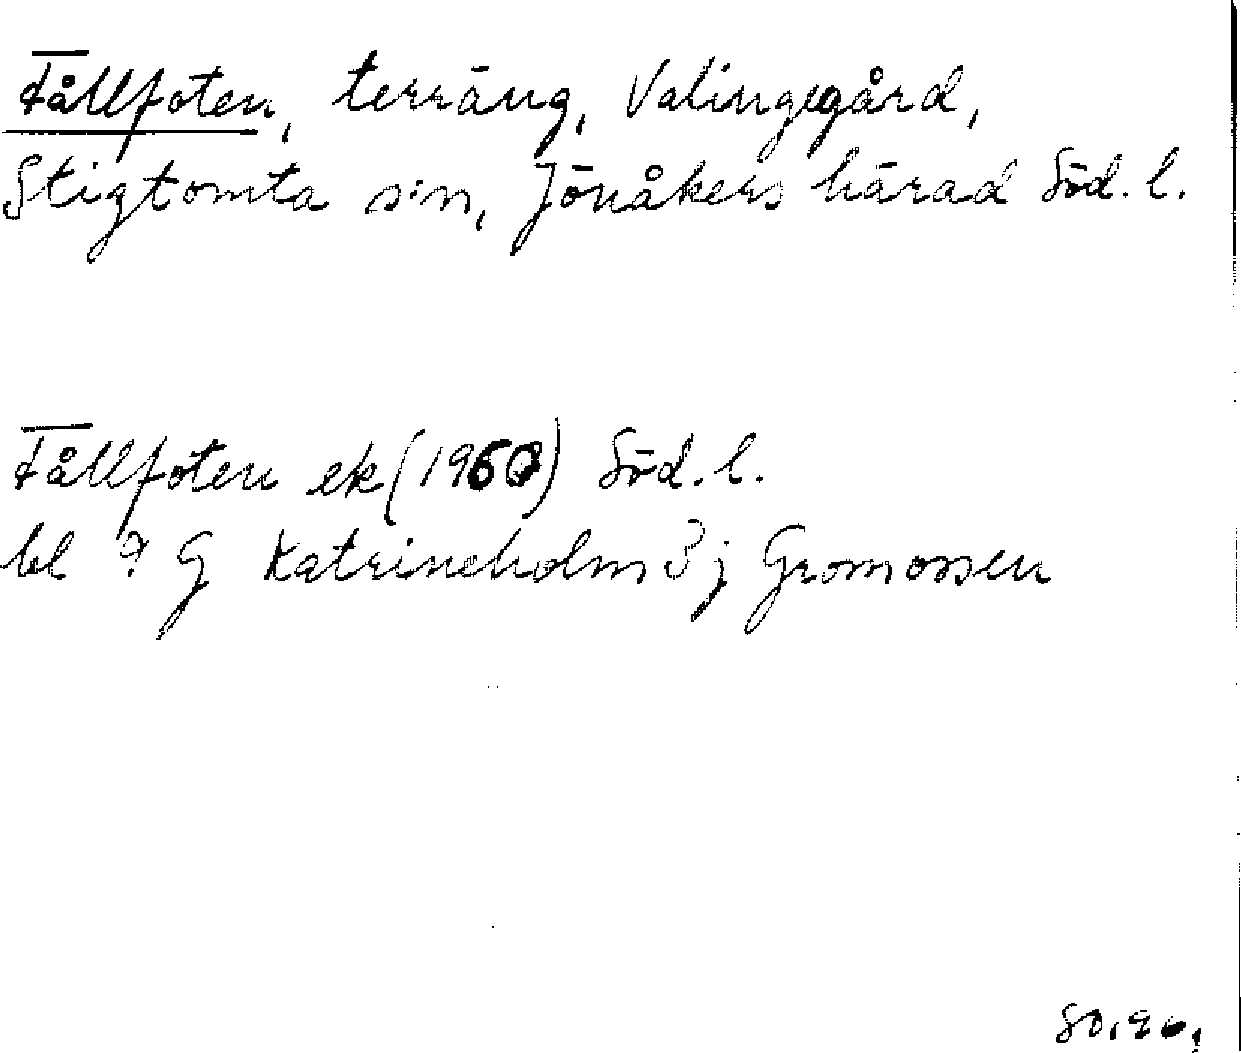 Fållfoten, terräng, Valingegård,
Stigtomta s:n, Jönåkers härad Söd. l.
Fållfoten ek (1960) Söd. l.
bl 9 G Katrineholm 3 j Gromossen